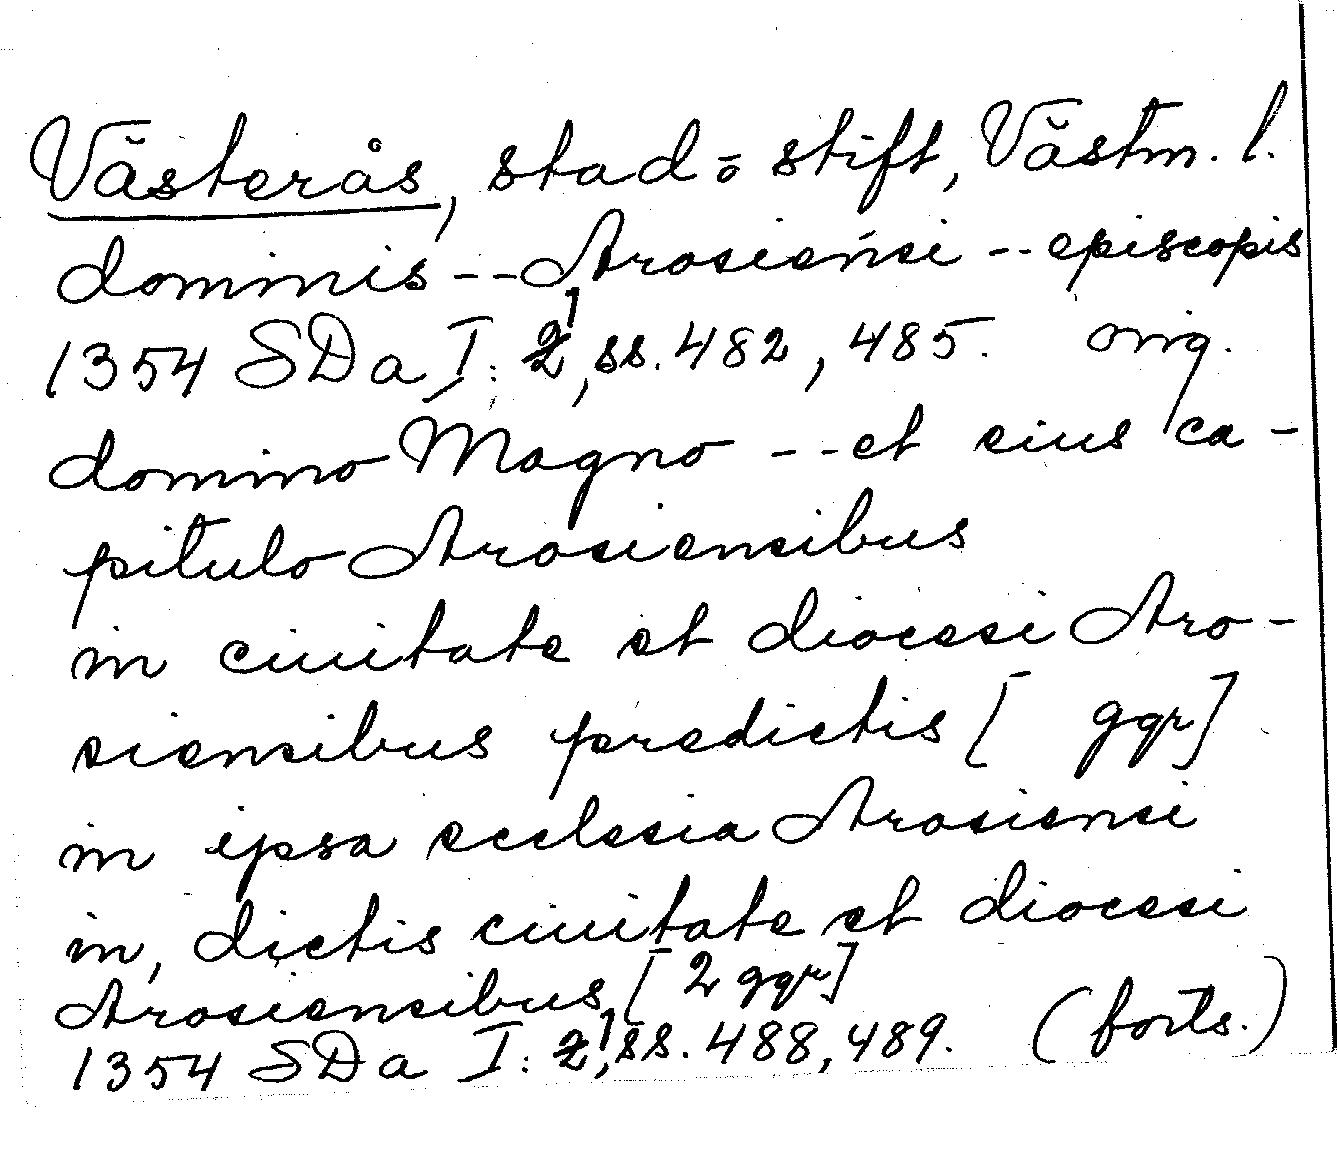 Västerås, stad o stift, Västm. l.
dominis -- Arosiensi -- episcopis
1354 SDa I: 1, ss. 482, 485. orig.
domino Magno -- et eius ca-
pitulo Arosiensibus
in ciuitate et diocesi Aro-
siensibus predictis [ ggr]
in ipsa ecclesia Arosiensi
in, dictis ciuitate et diocesi
Arosiensibus, [2 ggr]
1354 SDa I: 1, ss. 488, 489. (forts.)